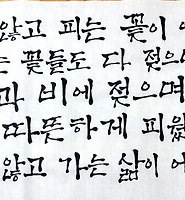 않고 피는 꽃이 어
는 꽃들도 다 젖으
과 비에 젖으며
따뜻하게 피웠
않고 가는 삶이 어